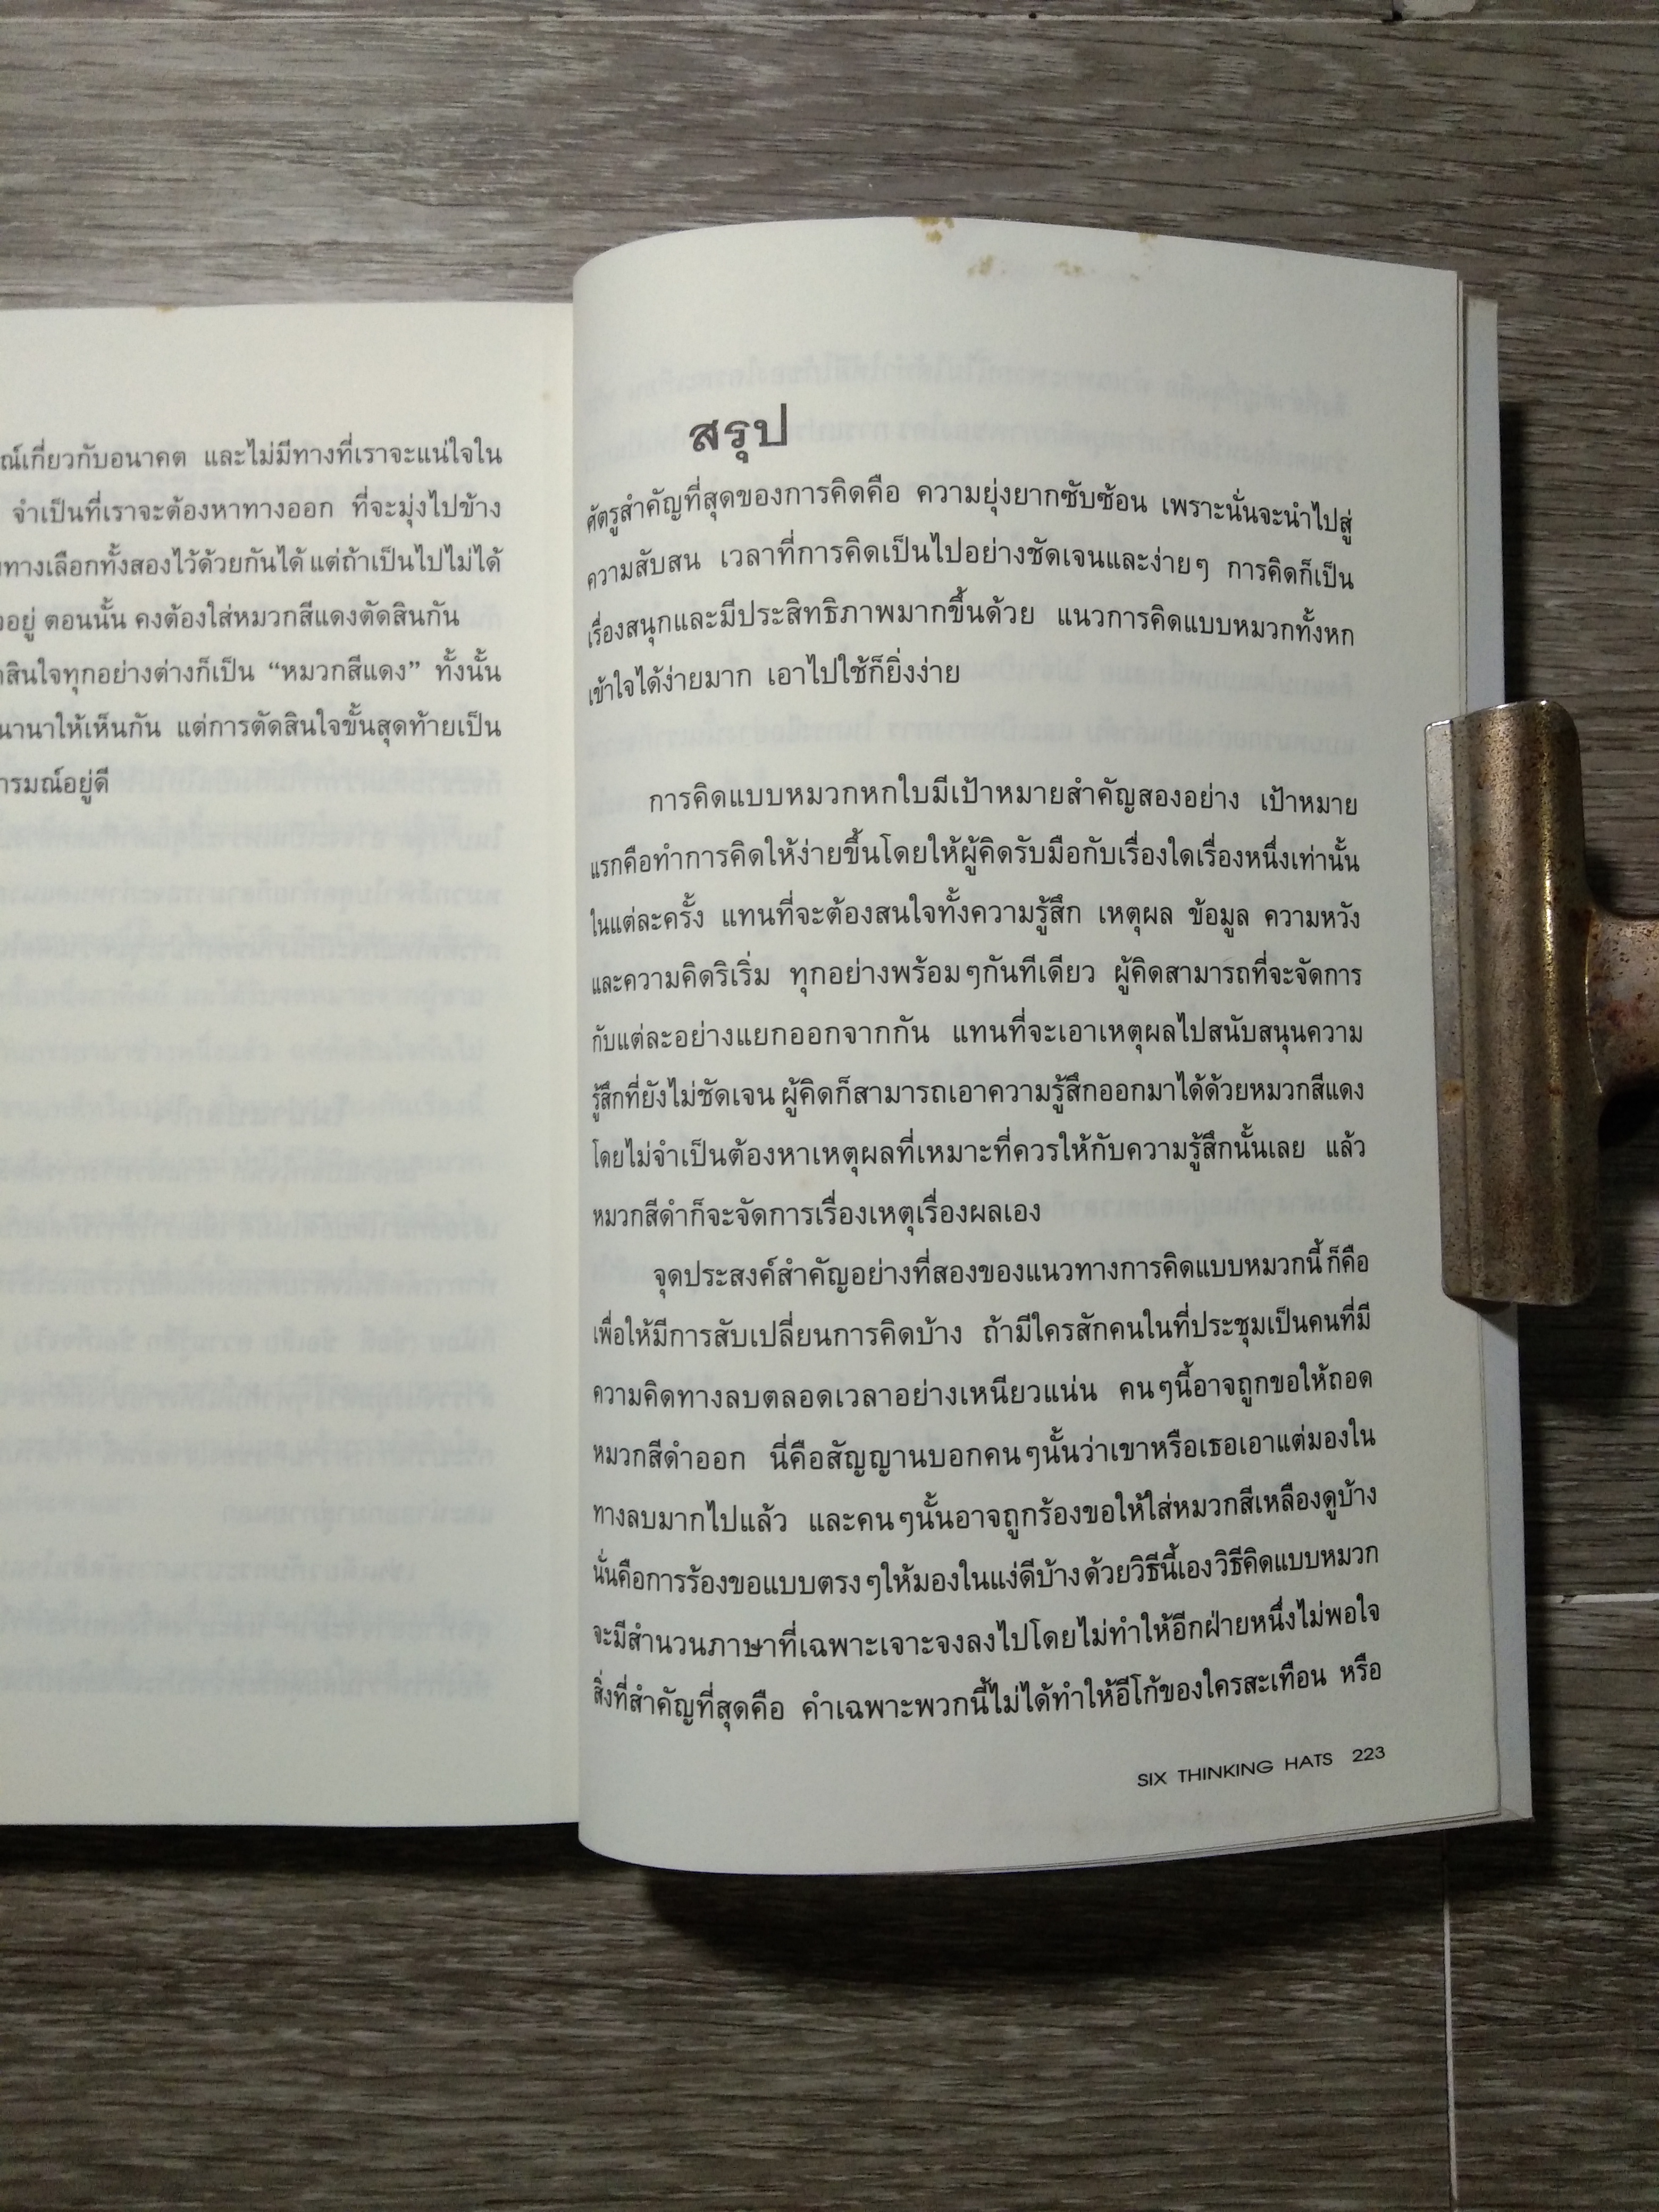 ณ์เกี่ยวกับอนาคต และไม่มีทางที่เราจะแน่ใจใน
จำเป็นที่เราจะต้องหาทางออก ที่จะมุ่งไปข้าง
ทางเลือกทั้งสองไว้ด้วยกันได้ แต่ถ้าเป็นไปไม่ได้
อยู่ ตอนนั้น คงต้องใส่หมวกสีแดงตัดสินกัน
สินใจทุกอย่างต่างก็เป็น “หมวกสีแดง” ทั้งนั้น
นานาให้เห็นกัน แต่การตัดสินใจขั้นสุดท้ายเป็น
ารมณ์อยู่ดี
สรุป
ศัตรูสำคัญที่สุดของการคิดคือ ความยุ่งยากซับซ้อน เพราะนั่นจะนำไปสู่
ความสับสน เวลาที่การคิดเป็นไปอย่างชัดเจนและง่ายๆ การคิดก็เป็น
เรื่องสนุกและมีประสิทธิภาพมากขึ้นด้วย แนวการคิดแบบหมวกทั้งหก
เข้าใจได้ง่ายมาก เอาไปใช้ก็ยิ่งง่าย
การคิดแบบหมวกหกใบมีเป้าหมายสำคัญสองอย่าง เป้าหมาย
แรกคือทำการคิดให้ง่ายขึ้นโดยให้ผู้คิดรับมือกับเรื่องใดเรื่องหนึ่งเท่านั้น
ในแต่ละครั้ง แทนที่จะต้องสนใจทั้งความรู้สึก เหตุผล ข้อมูล ความหวัง
และความคิดริเริ่ม ทุกอย่างพร้อมๆกันทีเดียว ผู้คิดสามารถที่จะจัดการ
กับแต่ละอย่างแยกออกจากกัน แทนที่จะเอาเหตุผลไปสนับสนุนความ
รู้สึกที่ยังไม่ชัดเจน ผู้คิดก็สามารถเอาความรู้สึกออกมาได้ด้วยหมวกสีแดง
โดยไม่จำเป็นต้องหาเหตุผลที่เหมาะที่ควรให้กับความรู้สึกนั้นเลย แล้ว
หมวกสีดำก็จะจัดการเรื่องเหตุเรื่องผลเอง
จุดประสงค์สำคัญอย่างที่สองของแนวทางการคิดแบบหมวกนี้ ก็คือ
เพื่อให้มีการสับเปลี่ยนการคิดบ้าง ถ้ามีใครสักคนในที่ประชุมเป็นคนที่มี
ความคิดทางลบตลอดเวลาอย่างเหนียวแน่น คนๆนี้อาจถูกขอให้ถอด
หมวกสีดำออก นี่คือสัญญานบอกคนๆนั้นว่าเขาหรือเธอเอาแต่มองใน
ทางลบมากไปแล้ว และคนๆนั้นอาจถูกร้องขอให้ใส่หมวกสีเหลืองดูบ้าง
นั่นคือการร้องขอแบบตรงๆให้มองในแง่ดีบ้าง ด้วยวิธีนี้เอง วิธีคิดแบบหมวก
จะมีสำนวนภาษาที่เฉพาะเจาะจงลงไปโดยไม่ทำให้อีกฝ่ายหนึ่งไม่พอใจ
สิ่งที่สำคัญที่สุดคือ คำเฉพาะพวกนี้ไม่ได้ทำให้อีโก้ของใครสะเทือน หรือ
SIX THINKING HATS 223